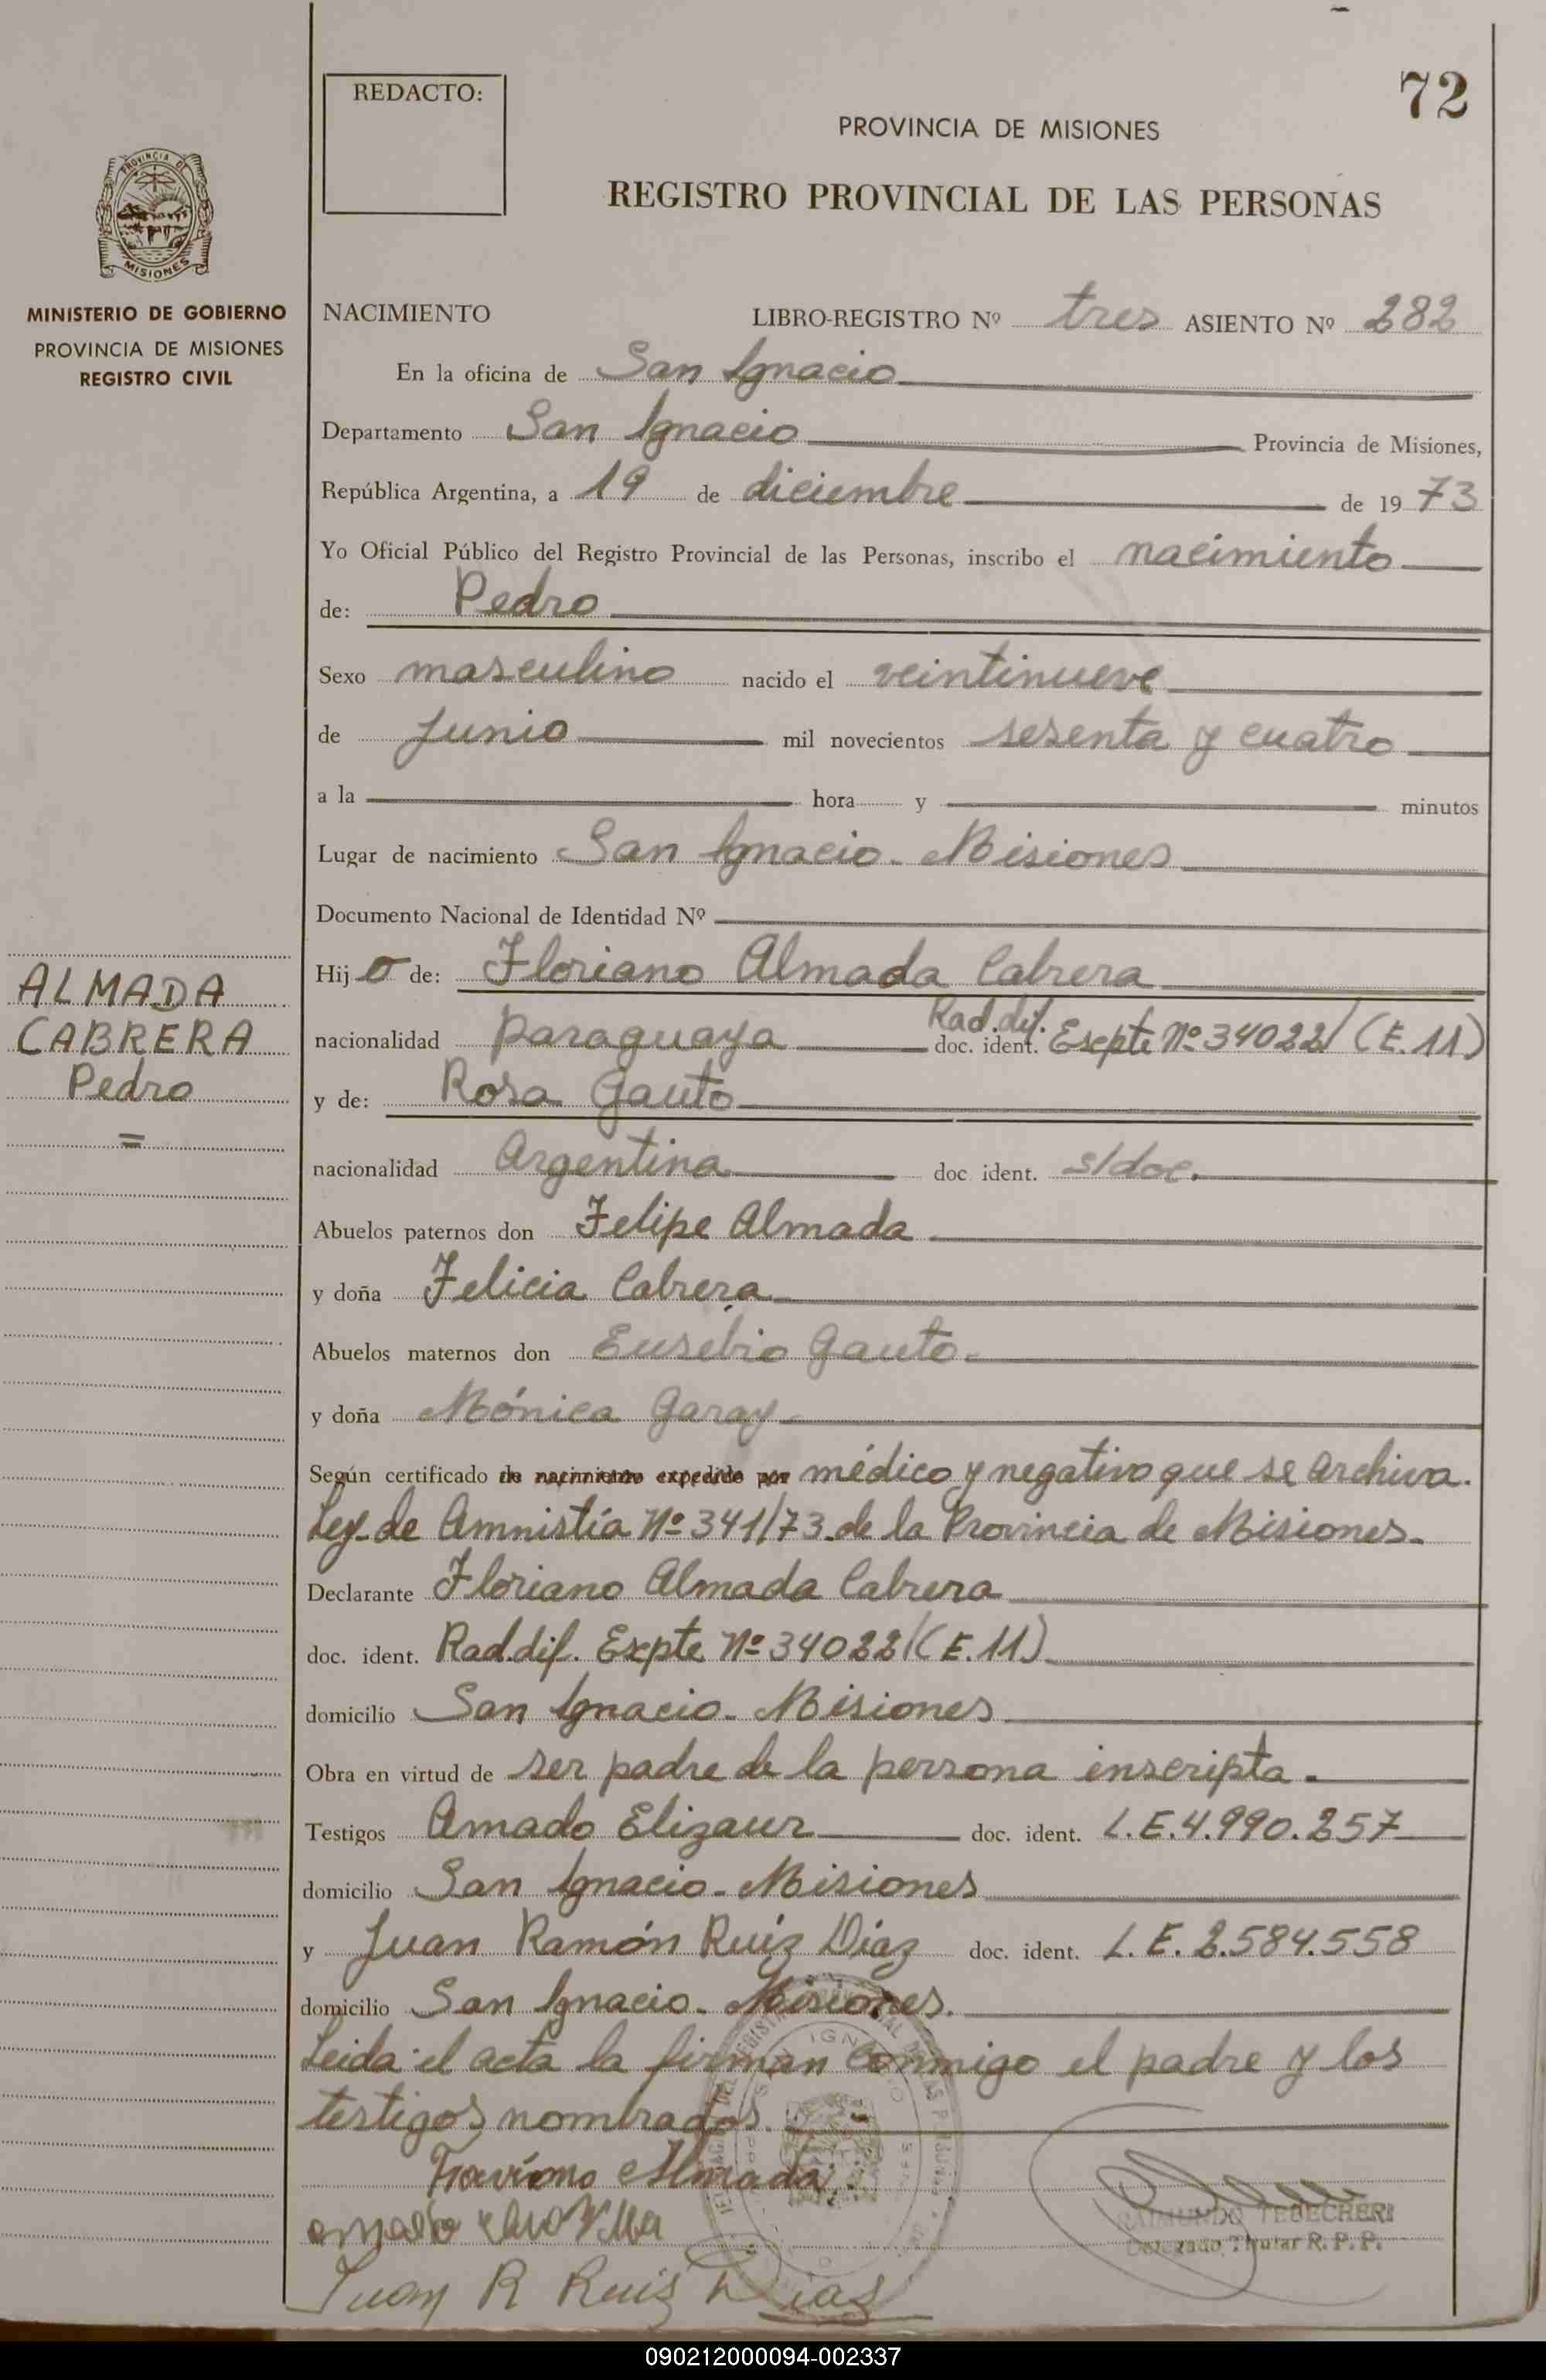 72
REDACTO:
PROVINCIA DE MISIONES
REGISTRO PROVINCIAL DE LAS PERSONAS
PROVINCIA DE
MISIONES
MINISTERIO DE GOBIERNO
PROVINCIA DE MISIONES
REGISTRO CIVIL
NACIMIENTO LIBRO-REGISTRO Nº tres ASIENTO Nº 282
En la oficina de San Ignacio
Departamento San Ignacio Provincia de Misiones,
República Argentina, a 19 de diciembre de 1973
Yo Oficial Público del Registro Provincial de las Personas, inscribo el nacimiento
de: Pedro
Sexo masculino nacido el veintinueve
de Junio mil novecientos sesenta y cuatro
a la hora y minutos
Lugar de nacimiento San Ignacio. Misiones
Documento Nacional de Identidad Nº
ALMADA
CABRERA
Pedro
=
Hijo de: Floriano Almada Cabrera
nacionalidad paraguaya doc. ident. Rad. dif. Expte Nº 34022/(E.11)
y de: Rosa Gauto
nacionalidad Argentina doc. ident. s/doc.
Abuelos paternos don Felipe Almada
y doña Felicia Cabrera
Abuelos maternos don Eusebio Gauto.
y doña Mónica Garay
Según certificado de nacimiento expedido por médico y negativo que se archiva.
Ley de Amnistía Nº 341/73 de la Provincia de Misiones.
Declarante Floriano Almada Cabrera
doc. ident. Rad. dif. Expte Nº 34022/(E.11)
domicilio San Ignacio. Misiones
Obra en virtud de ser padre de la persona inscripta.
Testigos Amado Elizaur doc. ident. L.E.4.990.257
domicilio San Ignacio. Misiones
y Juan Ramón Ruiz Díaz doc. ident. L.E. 2.584.558
domicilio San Ignacio. Misiones.
Leida el acta la firman conmigo el padre y los
testigos nombrados.
Almada
RAIMUNDO TEBECHERI
Delegado Titular R.P.P.
Juan R Ruis Dias
090212000094-002337